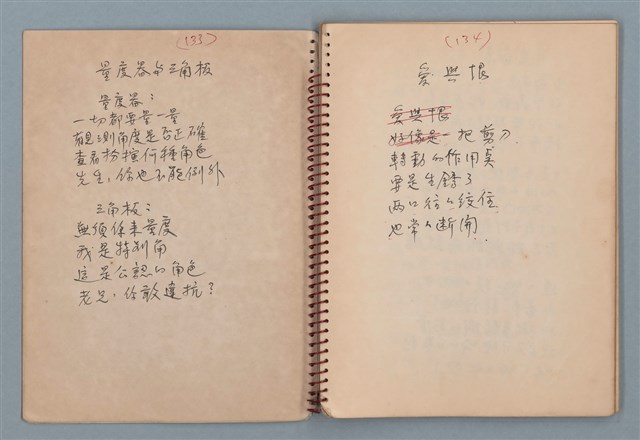 (133)
量度器與三角板
量度器：
一切都要量一量
觀測角度是否正確
查看扮演何種角色
先生，你也不能例外
三角板：
無須你來量度
我是特別角
這是公認的角色
老兄，你敢違抗？
(134)
愛與恨
愛與恨
好像是一把剪刀
轉動的作用美
要是生銹了
兩口往往絞住
也常常斷開